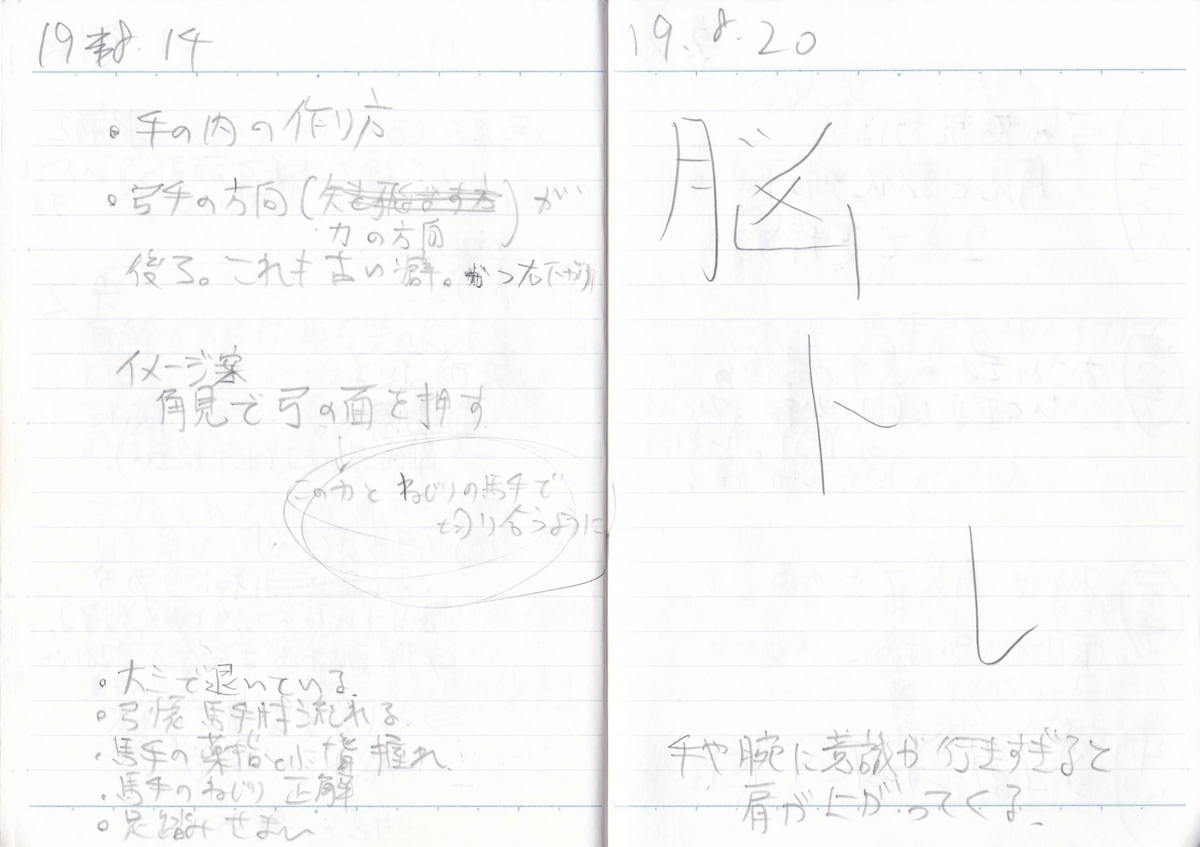 19 8. 14
・手の内の作り方
・弓手の方向(矢を飛ばす方)が
力の方向
後ろ。これも古い癖。かつ右下がり
イメージ案
角見で弓の面を押す
↓
この力とねじりの馬手で
切り合うように
・大三で退いている。
・弓懐 馬手肘流れる。
・馬手の薬指と小指握れ。
・馬手のねじり 正解
・足踏みせまい
19. 8. 20
脳
ト
レ
手や腕に意識が行きすぎると
肩が上がってくる。